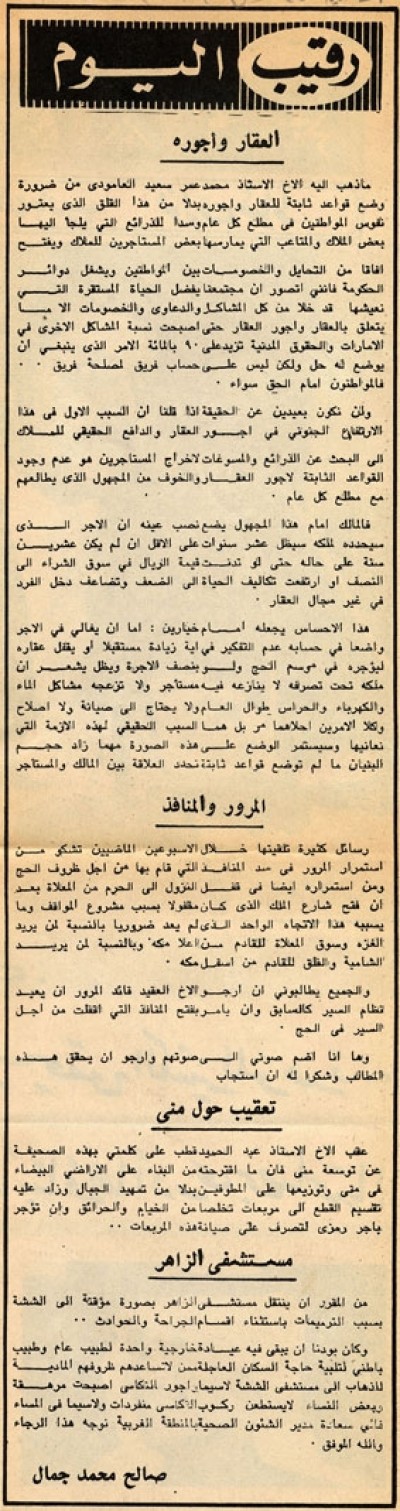 رقيب اليوم
العقار واجوره
ماذهب اليه الاخ الاستاذ محمد عمر سعيد العامودى من ضرورة
وضع قواعد ثابتة للعقار واجوره بدلا من هذا القلق الذى يعتور
نفوس المواطنين فى مطلع كل عام وسدا للذرائع التي يلجا اليها
بعض الملاك والمتاعب التي يمارسها بعض المستاجرين للملاك ويفتح
افاقا من التحايل والخصومات بين المواطنين ويشغل دوائر
الحكومة فانني اتصور ان مجتمعنا بفضل الحياة المستقرة التي
نعيشها قد خلا من كل المشاكل والدعاوى والخصومات الا ما
يتعلق بالعقار واجور العقار حتى اصبحت نسبة المشاكل الاخرى فى
الامارات والحقوق المدنية تزيد على ٩٠ بالمائة الامر الذى ينبغى أن
يوضع له حل ولكن ليس على حساب فريق لمصلحة فريق . .
فالمواطنون امام الحق سواء .
ولن نكون بعيدين عن الحقيقة اذا قلنا ان السبب الاول فى هذا
الارتفاع الجنوني في اجور العقار والدافع الحقيقي للملاك
الى البحث عن الذرائع والمسوغات لاخراج المستاجرين هو عدم وجود
القواعد الثابتة لاجور العقار والخوف من المجهول الذى يطالعهم
مع مطلع كل عام .
فالمالك امام هذا المجهول يضع نصب عينه ان الاجر الذى
سيحدده لملكه سيظل عشر سنوات على الاقل ان لم يكن عشرين
سنة على حاله حتى لو تدنت قيمة الريال في سوق الشراء الى
النصف او ارتفعت تكاليف الحياة الى الضعف وتضاعف دخل الفرد
في غير مجال العقار .
هذا الاحساس يجعله أمام خيارين : اما ان يغالي في الاجر
واضعا في حسابه عدم التفكير في اية زيادة مستقبلا أو يقفل عقاره
ليؤجره في موسم الحج ولو بنصف الاجرة ويظل يشعر ان
ملكه تحت تصرفه لا ينازعه فيه مستأجر ولا تزعجه مشاكل الماء
والكهرباء والحراس طوال العام ولا يحتاج الى صيانة ولا اصلاح
وكلا الامرين احلاهما مر بل هما السبب الحقيقي لهذه الازمة التي
نعانيها وسيستمر الوضع على هذه الصورة مهما زاد حجم
البنيان ما لم توضع قواعد ثابتة تحدد العلاقة بين المالك والمستأجر
المرور والمنافذ
رسائل كثيرة تلقيتها خلال الاسبوعين الماضيين تشكو من
استمرار المرور فى سد المنافذ التي قام بها من اجل ظروف الحج
ومن استمراره ايضا فى قفل النزول الى الحرم من المعلاة بعد
ان فتح شارع الملك الذى كان مقفولا بسبب مشروع المواقف وما
يسببه هذا الاتجاه الواحد الذى لم يعد ضروريا بالنسبة لمن يريد
الغزه وسوق المعلاة للقادم من اعلا مكه وبالنسبة لمن يريد
الشامية والفلق للقادم من اسفل مكه .
والجميع يطالبوني ان ارجو الاخ العقيد قائد المرور ان يعيد
نظام السير كالسابق وان يامر بفتح المنافذ التي اقفلت من أجل
السير فى الحج .
وها انا اضم صوتي الى صوتهم وارجو ان يحقق هذه
المطالب وشكرا له ان استجاب
تعقيب حول منى
عقب الاخ الاستاذ عبد الحميد قطب على كلمتي بهذه الصحيفة
عن توسعة منى فان ما اقترحته من البناء على الاراضي البيضاء
فى منى وتوزيعها على المطوفين بدلا من تمهيد الجبال وزاد عليه
تقسيم القطع الى مربعات تخلصا من الخيام والحرائق وان تؤجر
باجر رمزى لتصرف على صيانة هذه المربعات ..
مستشفى الزاهر
من المقرر ان ينتقل مستشفى الزاهر بصورة مؤقتة الى الششة
بسبب الترميمات باستثناء اقسام الجراحة والحوادث ..
وكان بودنا ان يبقى فيه عيادة خارجية واحدة لطبيب عام وطبيب
باطني لتلبية حاجة السكان العاجلة ممن لا تساعدهم ظروفهم المادية
للذهاب الى مستشفى الششة لاسيما واجور التكاسي اصبحت مرهقة
وبعض النساء لايستطعن ركوب التكاسى منفردات ولاسيما فى المساء
فالي سعادة مدير الشئون الصحية بالمنطقة الغربية نوجه هذا الرجاء
والله الموفق .
صالح محمد جمال